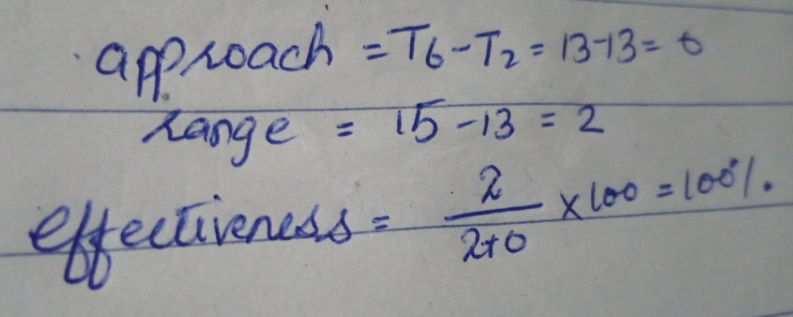 approach = T6-T2 = 13-13 = 0
range = 15-13 = 2
effectiveness = 2/2+0 x100 = 100%.